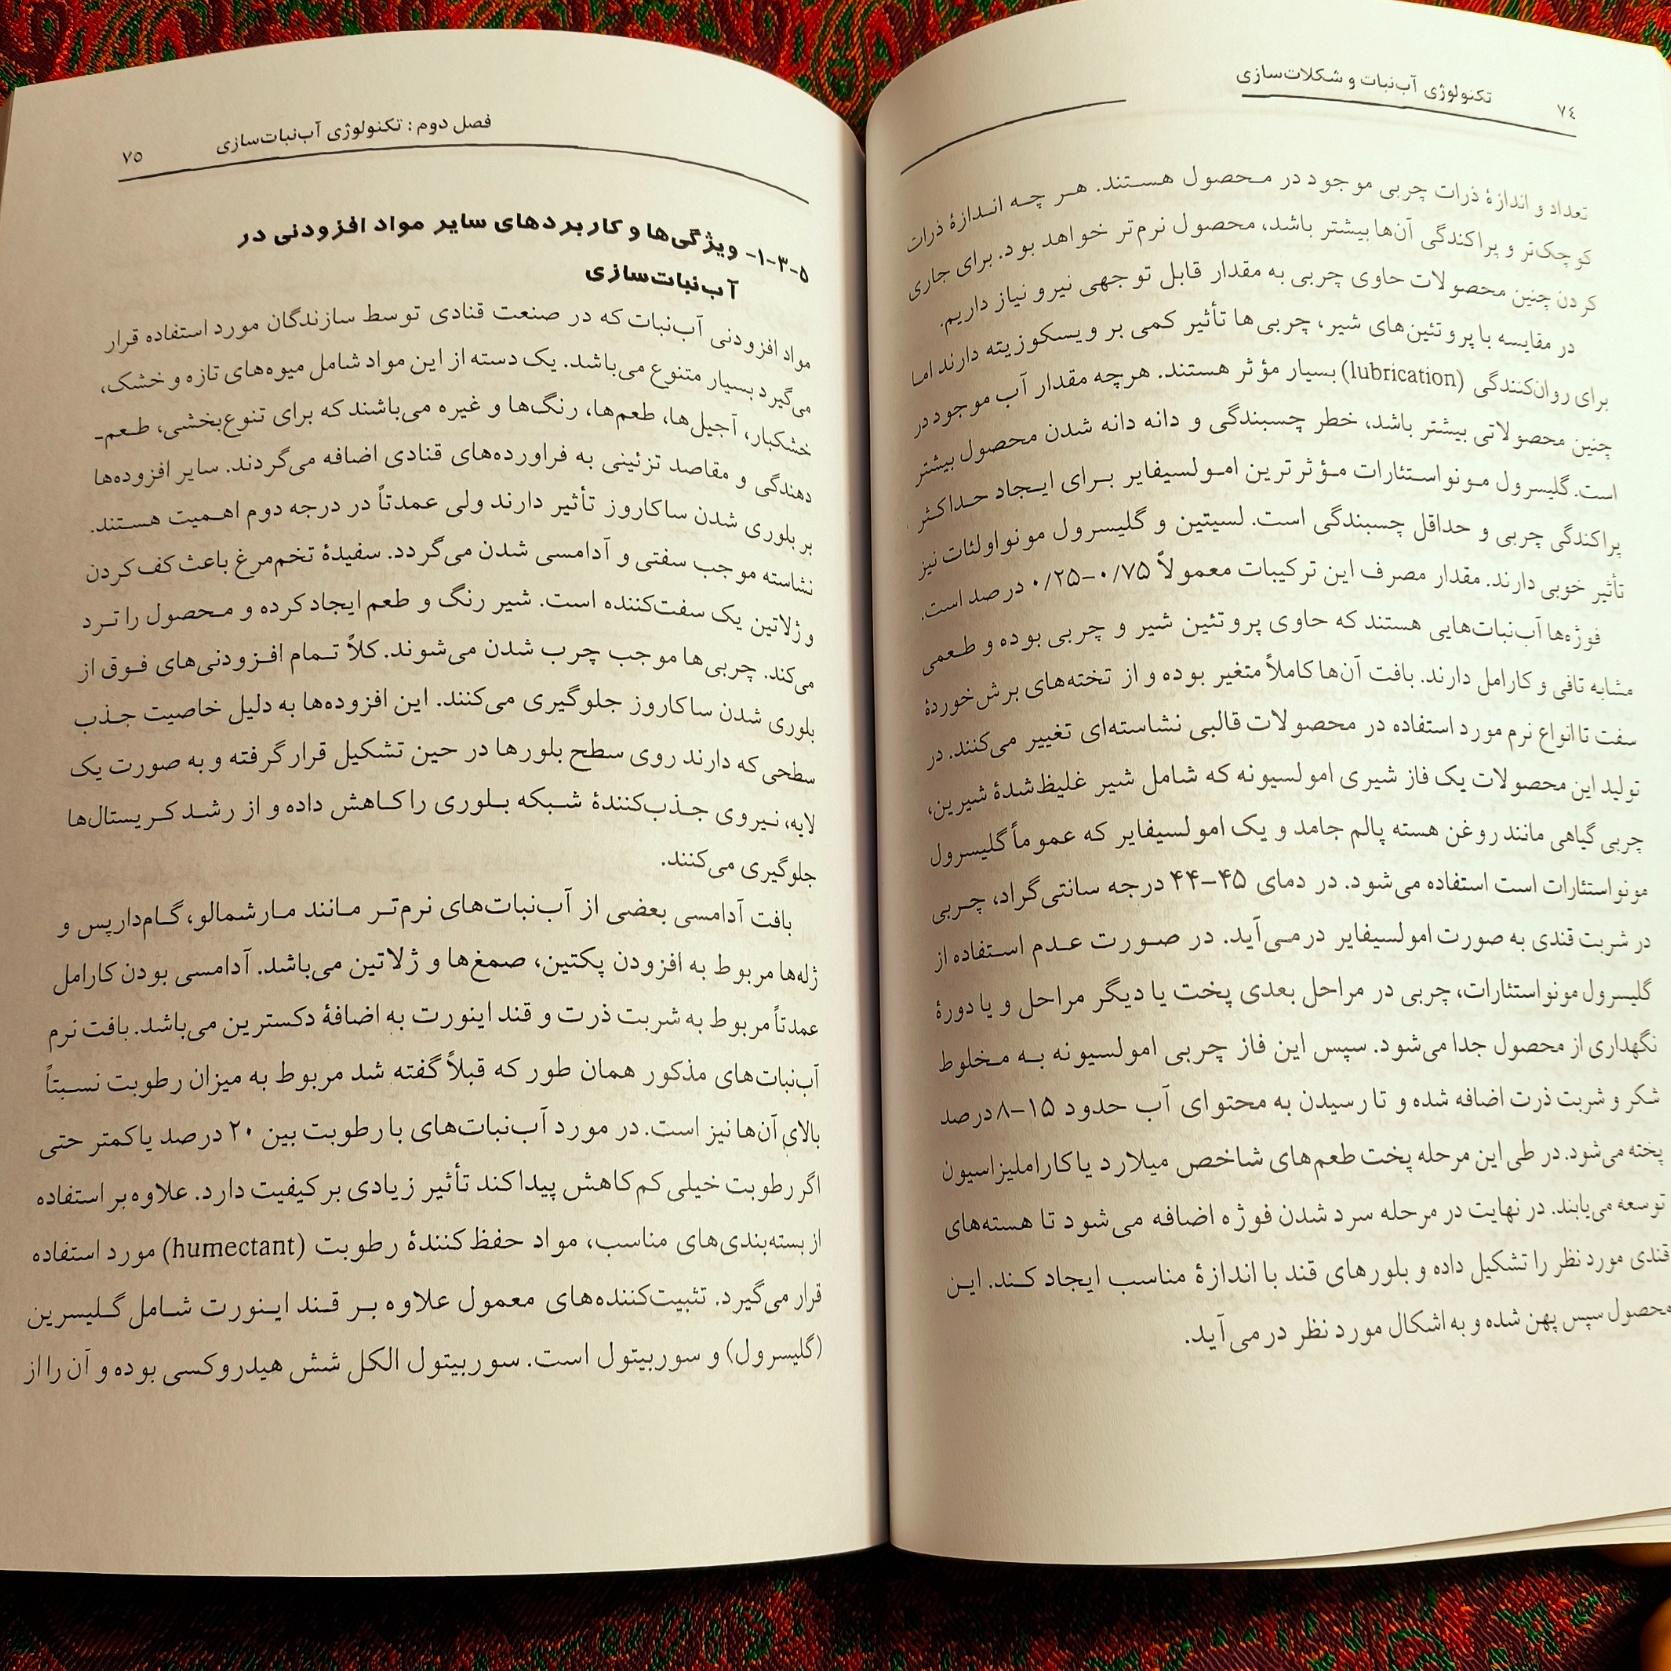 ۷٤
تکنولوژی آب‌نبات و شکلات‌سازی
تعداد و اندازهٔ ذرات چربی موجود در محصول هستند. هر چه اندازهٔ ذرات
کوچک‌تر و پراکندگی آن‌ها بیشتر باشد، محصول نرم‌تر خواهد بود. برای جاری
کردن چنین محصولات حاوی چربی به مقدار قابل توجهی نیرو نیاز داریم.
در مقایسه با پروتئین‌های شیر، چربی‌ها تأثیر کمی بر ویسکوزیته دارند اما
برای روان‌کنندگی (lubrication) بسیار مؤثر هستند. هرچه مقدار آب موجود در
چنین محصولاتی بیشتر باشد، خطر چسبندگی و دانه دانه شدن محصول بیشتر
است. گلیسرول مونواستئارات مؤثرترین امولسیفایر برای ایجاد حداکثر
پراکندگی چربی و حداقل چسبندگی است. لسیتین و گلیسرول مونواولئات نیز
تأثیر خوبی دارند. مقدار مصرف این ترکیبات معمولاً ۰/۷۵–۰/۲۵ درصد است.
فوژه‌ها آب‌نبات‌هایی هستند که حاوی پروتئین شیر و چربی بوده و طعمی
مشابه تافی و کارامل دارند. بافت آن‌ها کاملاً متغیر بوده و از تخته‌های برش‌خوردهٔ
سفت تا انواع نرم مورد استفاده در محصولات قالبی نشاسته‌ای تغییر می‌کنند. در
تولید این محصولات یک فاز شیری امولسیونه که شامل شیر غلیظ‌شدهٔ شیرین،
چربی گیاهی مانند روغن هسته پالم جامد و یک امولسیفایر که عموماً گلیسرول
مونواستئارات است استفاده می‌شود. در دمای ۴۵–۴۴ درجه سانتی‌گراد، چربی
در شربت قندی به صورت امولسیفایر درمی‌آید. در صورت عدم استفاده از
گلیسرول مونواستئارات، چربی در مراحل بعدی پخت یا دیگر مراحل و یا دورهٔ
نگهداری از محصول جدا می‌شود. سپس این فاز چربی امولسیونه به مخلوط
شکر و شربت ذرت اضافه شده و تا رسیدن به محتوای آب حدود ۱۵–۸ درصد
پخته می‌شود. در طی این مرحله پخت طعم‌های شاخص میلارد یا کاراملیزاسیون
توسعه می‌یابند. در نهایت در مرحله سرد شدن فوژه اضافه می‌شود تا هسته‌های
قندی مورد نظر را تشکیل داده و بلورهای قند با اندازهٔ مناسب ایجاد کند. این
محصول سپس پهن شده و به اشکال مورد نظر در می‌آید.
فصل دوم: تکنولوژی آب‌نبات‌سازی
۷۵
۵-۳-۱- ویژگی‌ها و کاربردهای سایر مواد افزودنی در
آب‌نبات‌سازی
مواد افزودنی آب‌نبات که در صنعت قنادی توسط سازندگان مورد استفاده قرار
می‌گیرد بسیار متنوع می‌باشد. یک دسته از این مواد شامل میوه‌های تازه و خشک،
خشکبار، آجیل‌ها، طعم‌ها، رنگ‌ها و غیره می‌باشند که برای تنوع‌بخشی، طعم-
دهندگی و مقاصد تزئینی به فراورده‌های قنادی اضافه می‌گردند. سایر افزوده‌ها
بر بلوری شدن ساکاروز تأثیر دارند ولی عمدتاً در درجه دوم اهمیت هستند.
نشاسته موجب سفتی و آدامسی شدن می‌گردد. سفیدهٔ تخم‌مرغ باعث کف کردن
و ژلاتین یک سفت‌کننده است. شیر رنگ و طعم ایجاد کرده و محصول را ترد
می‌کند. چربی‌ها موجب چرب شدن می‌شوند. کلاً تمام افزودنی‌های فوق از
بلوری شدن ساکاروز جلوگیری می‌کنند. این افزوده‌ها به دلیل خاصیت جذب
سطحی که دارند روی سطح بلورها در حین تشکیل قرار گرفته و به صورت یک
لایه، نیروی جذب‌کنندهٔ شبکه بلوری را کاهش داده و از رشد کریستال‌ها
جلوگیری می‌کنند.
بافت آدامسی بعضی از آب‌نبات‌های نرم‌تر مانند مارشمالو، گام‌دارپس و
ژله‌ها مربوط به افزودن پکتین، صمغ‌ها و ژلاتین می‌باشد. آدامسی بودن کارامل
عمدتاً مربوط به شربت ذرت و قند اینورت به اضافهٔ دکسترین می‌باشد. بافت نرم
آب‌نبات‌های مذکور همان طور که قبلاً گفته شد مربوط به میزان رطوبت نسبتاً
بالای آن‌ها نیز است. در مورد آب‌نبات‌های با رطوبت بین ۲۰ درصد یا کمتر حتی
اگر رطوبت خیلی کم کاهش پیدا کند تأثیر زیادی بر کیفیت دارد. علاوه بر استفاده
از بسته‌بندی‌های مناسب، مواد حفظ‌کنندهٔ رطوبت (humectant) مورد استفاده
قرار می‌گیرد. تثبیت‌کننده‌های معمول علاوه بر قند اینورت شامل گلیسرین
(گلیسرول) و سوربیتول است. سوربیتول الکل شش هیدروکسی بوده و آن را از